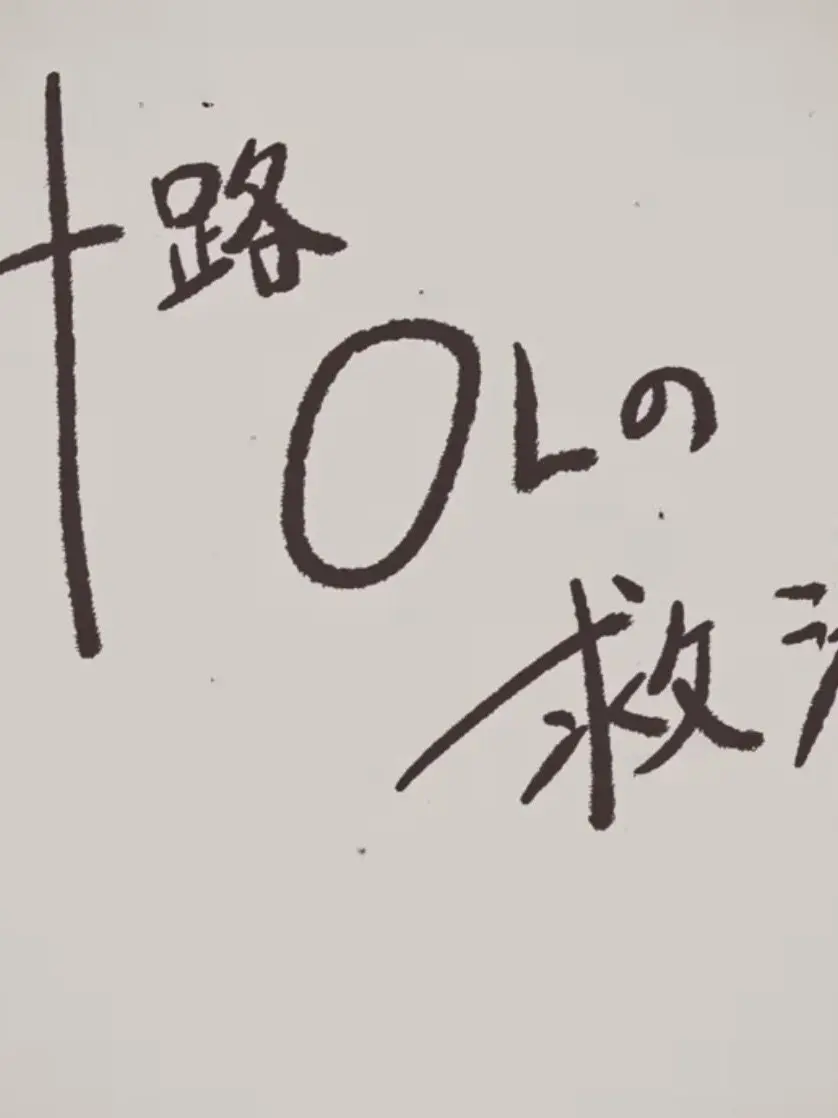 十路
OLの
救